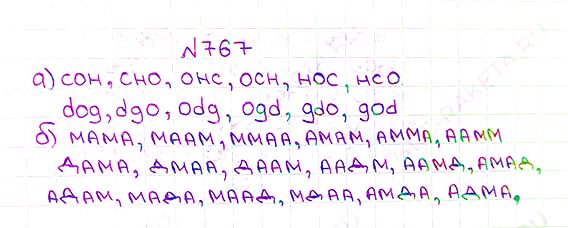 №767
а) сон, сно, онс, осн, нос, нсо
dog, dgo, odg, ogd, gdo, god
б) МАМА, МААМ, ММАА, АМАМ, АММА, ААММ
ДАМА, ДМАА, ДААМ, ААДМ, ААМД, АМАД,
АДАМ, МАДА, МААД, МДАА, АМДА, АДМА,